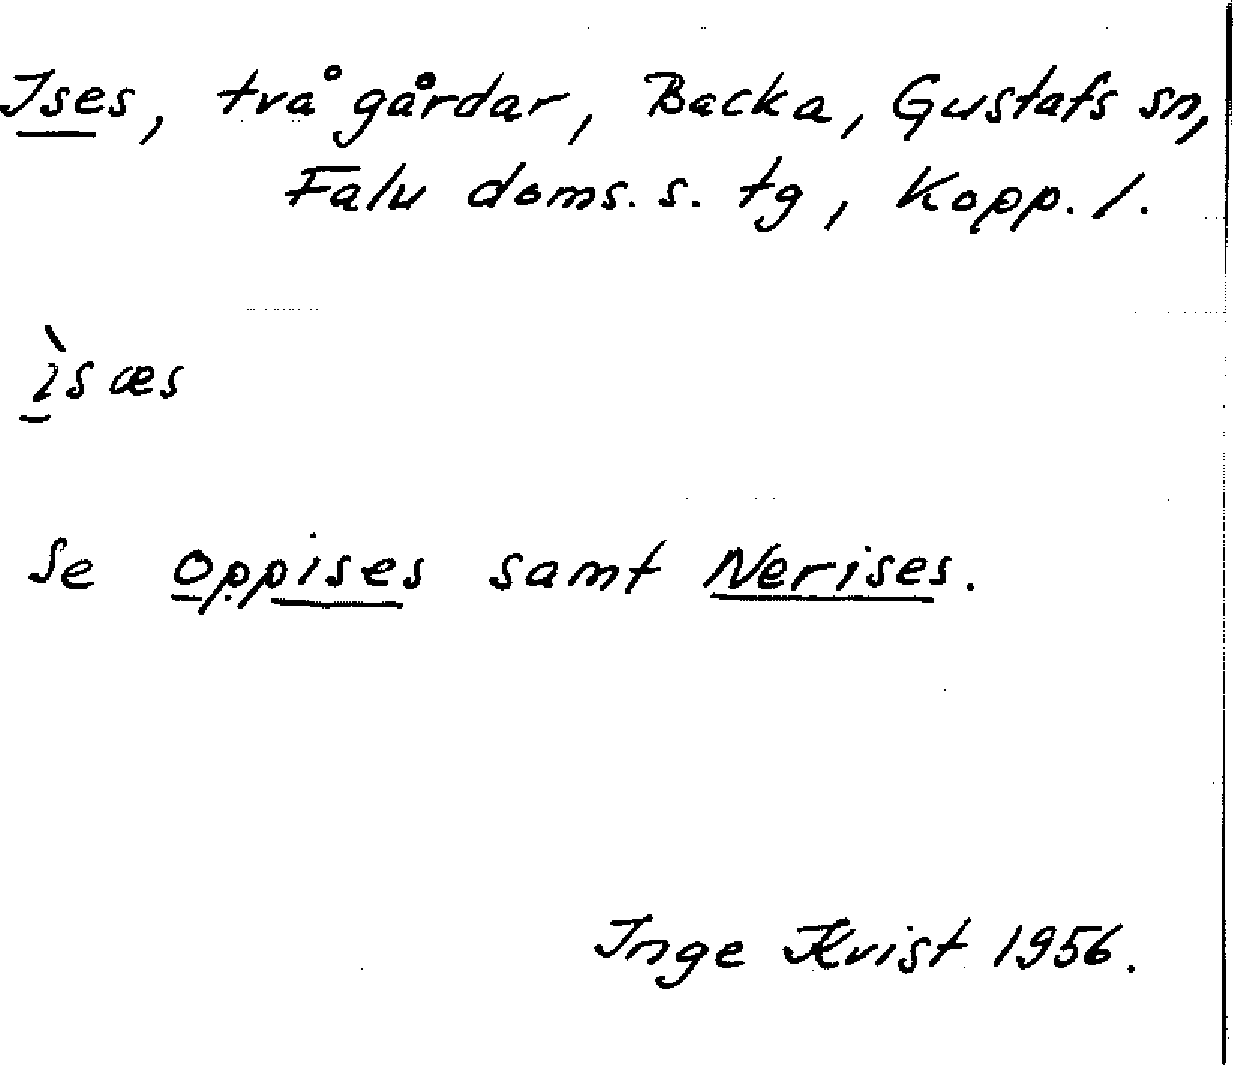 Ises, två gårdar, Backa, Gustafs sn,
Falu doms. s. tg, Kopp. l.
ì̱sæs
Se Oppises samt Nerises.
Inge Kvist 1956.